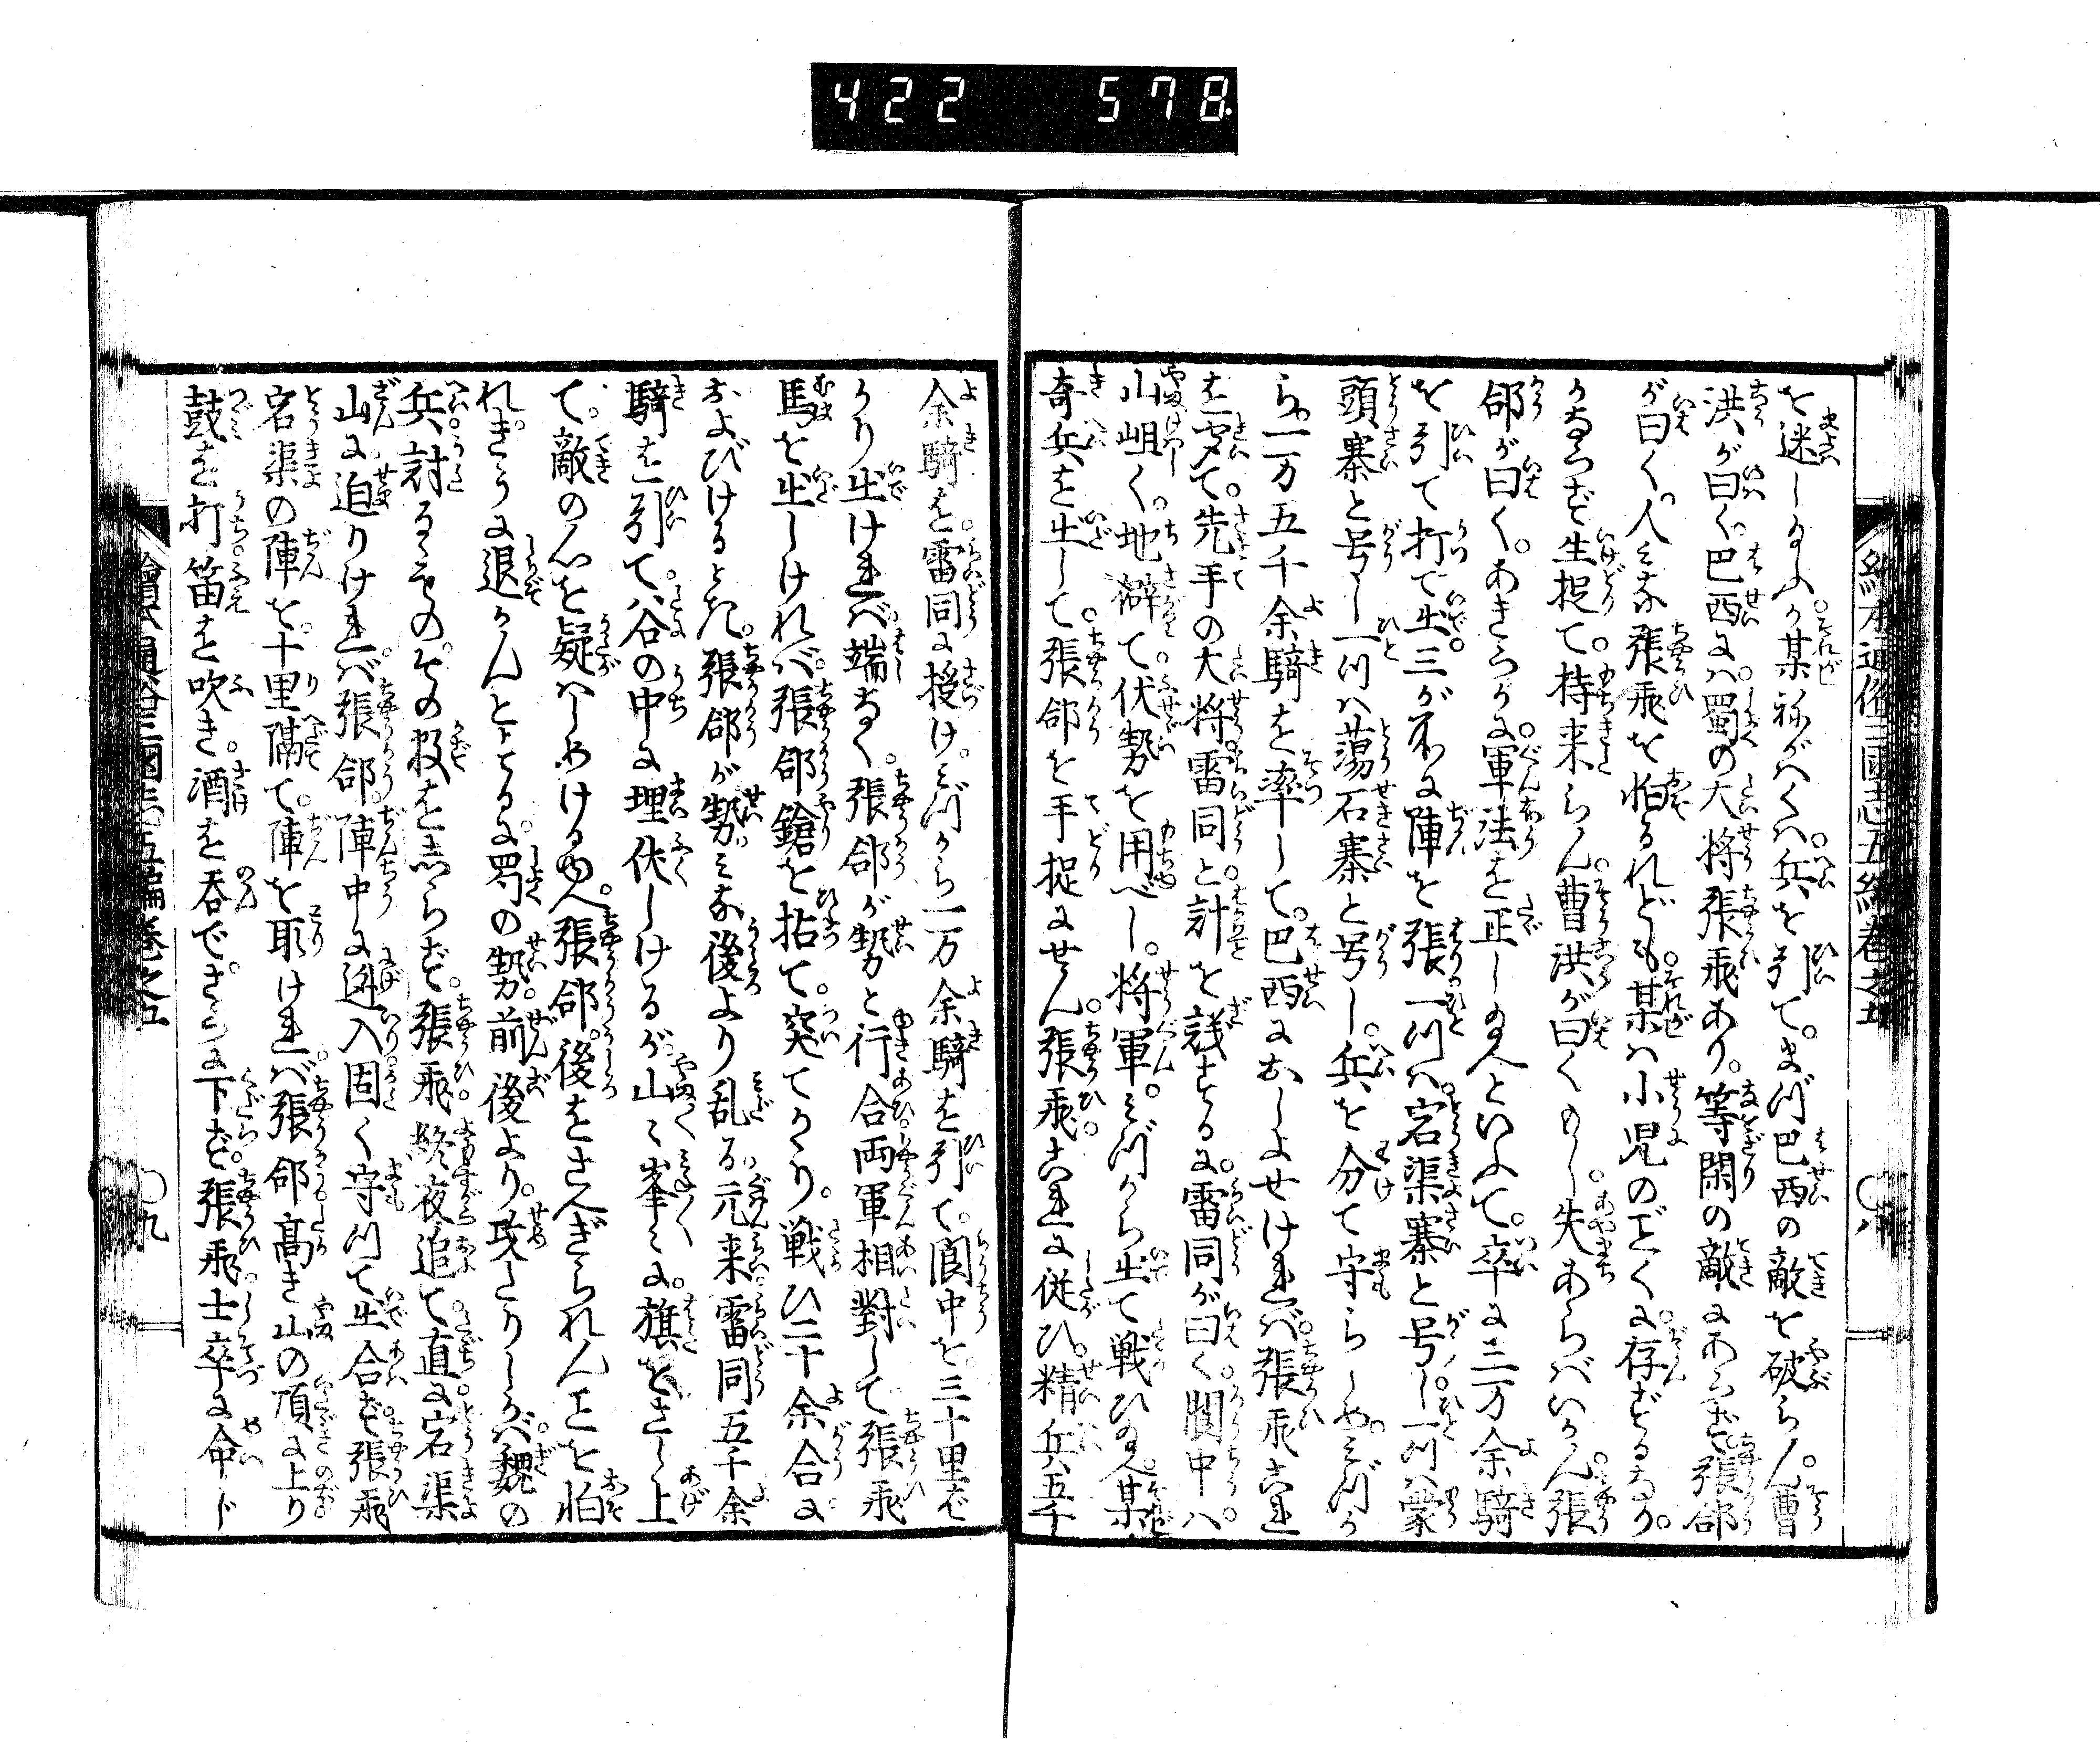 422 578
を迷し給ふか某ねがはくは。兵を引て。まづ巴西の敵を破らん。曹
洪が曰く。巴西には。蜀の大将張飛あり。等閑の敵にあらず張郃
が曰く。人みな張飛を怕るれども。某は小児のごとくに存ずるなり。
かならず生捉て。持来らん。曹洪が曰くもし。失あらばいかん。張
郃が曰く。あきらかに。軍法を正し給へといふて。卒に三万余騎
を引て打て出。三が所に陣を張一つは。宕渠寨と号し一つは蒙
頭寨と号し一つは蕩石寨と号し。兵を分て守らしめ。みづか
ら一万五千余騎を率して。巴西におしよせければ。張飛これ
を聞て。先手の大将雷同と。計を議するに。雷同が曰く。閬中は。
山岨く。地僻て。伏勢を用べし。将軍。みづから出て戦ひ給へ。某
奇兵を出して。張郃を手捉にせん。張飛これに従ひ。精兵五千
繪本通俗三國志五編卷之五
○八
余騎を。雷同に授け。みづから一万余騎を引て。閬中を三十里ば
かり出ければ。端なく。張郃が勢と行合。両軍相對して張飛
馬を出しければ。張郃鎗を拈て。突てかゝり。戦ひ二十余合に。
およびけるとき。張郃が勢。みな後より乱る。元来。雷同五千余
騎を引て。谷の中に埋伏しけるが。山〻峯〻に。旗をさし上
て。敵の心を疑はしめけるゆへ。張郃。後をさへぎられんことを怕
れ。きうに退かんとするに。蜀の勢。前後より。攻たりしかば。魏の
兵。討るゝもの。その数をしらず。張飛。終夜追て。直に。宕渠
山に。迫りければ。張郃。陣中に迯入。固く守つて出合ず。張飛
宕渠の陣を。十里隔て。陣を取ければ。張郃高き山の頂に上り
鼓を打。笛を吹き。酒を呑で。さらに下ず。張飛。士卒に命じ
繪本通俗三國志五編卷之五
○九